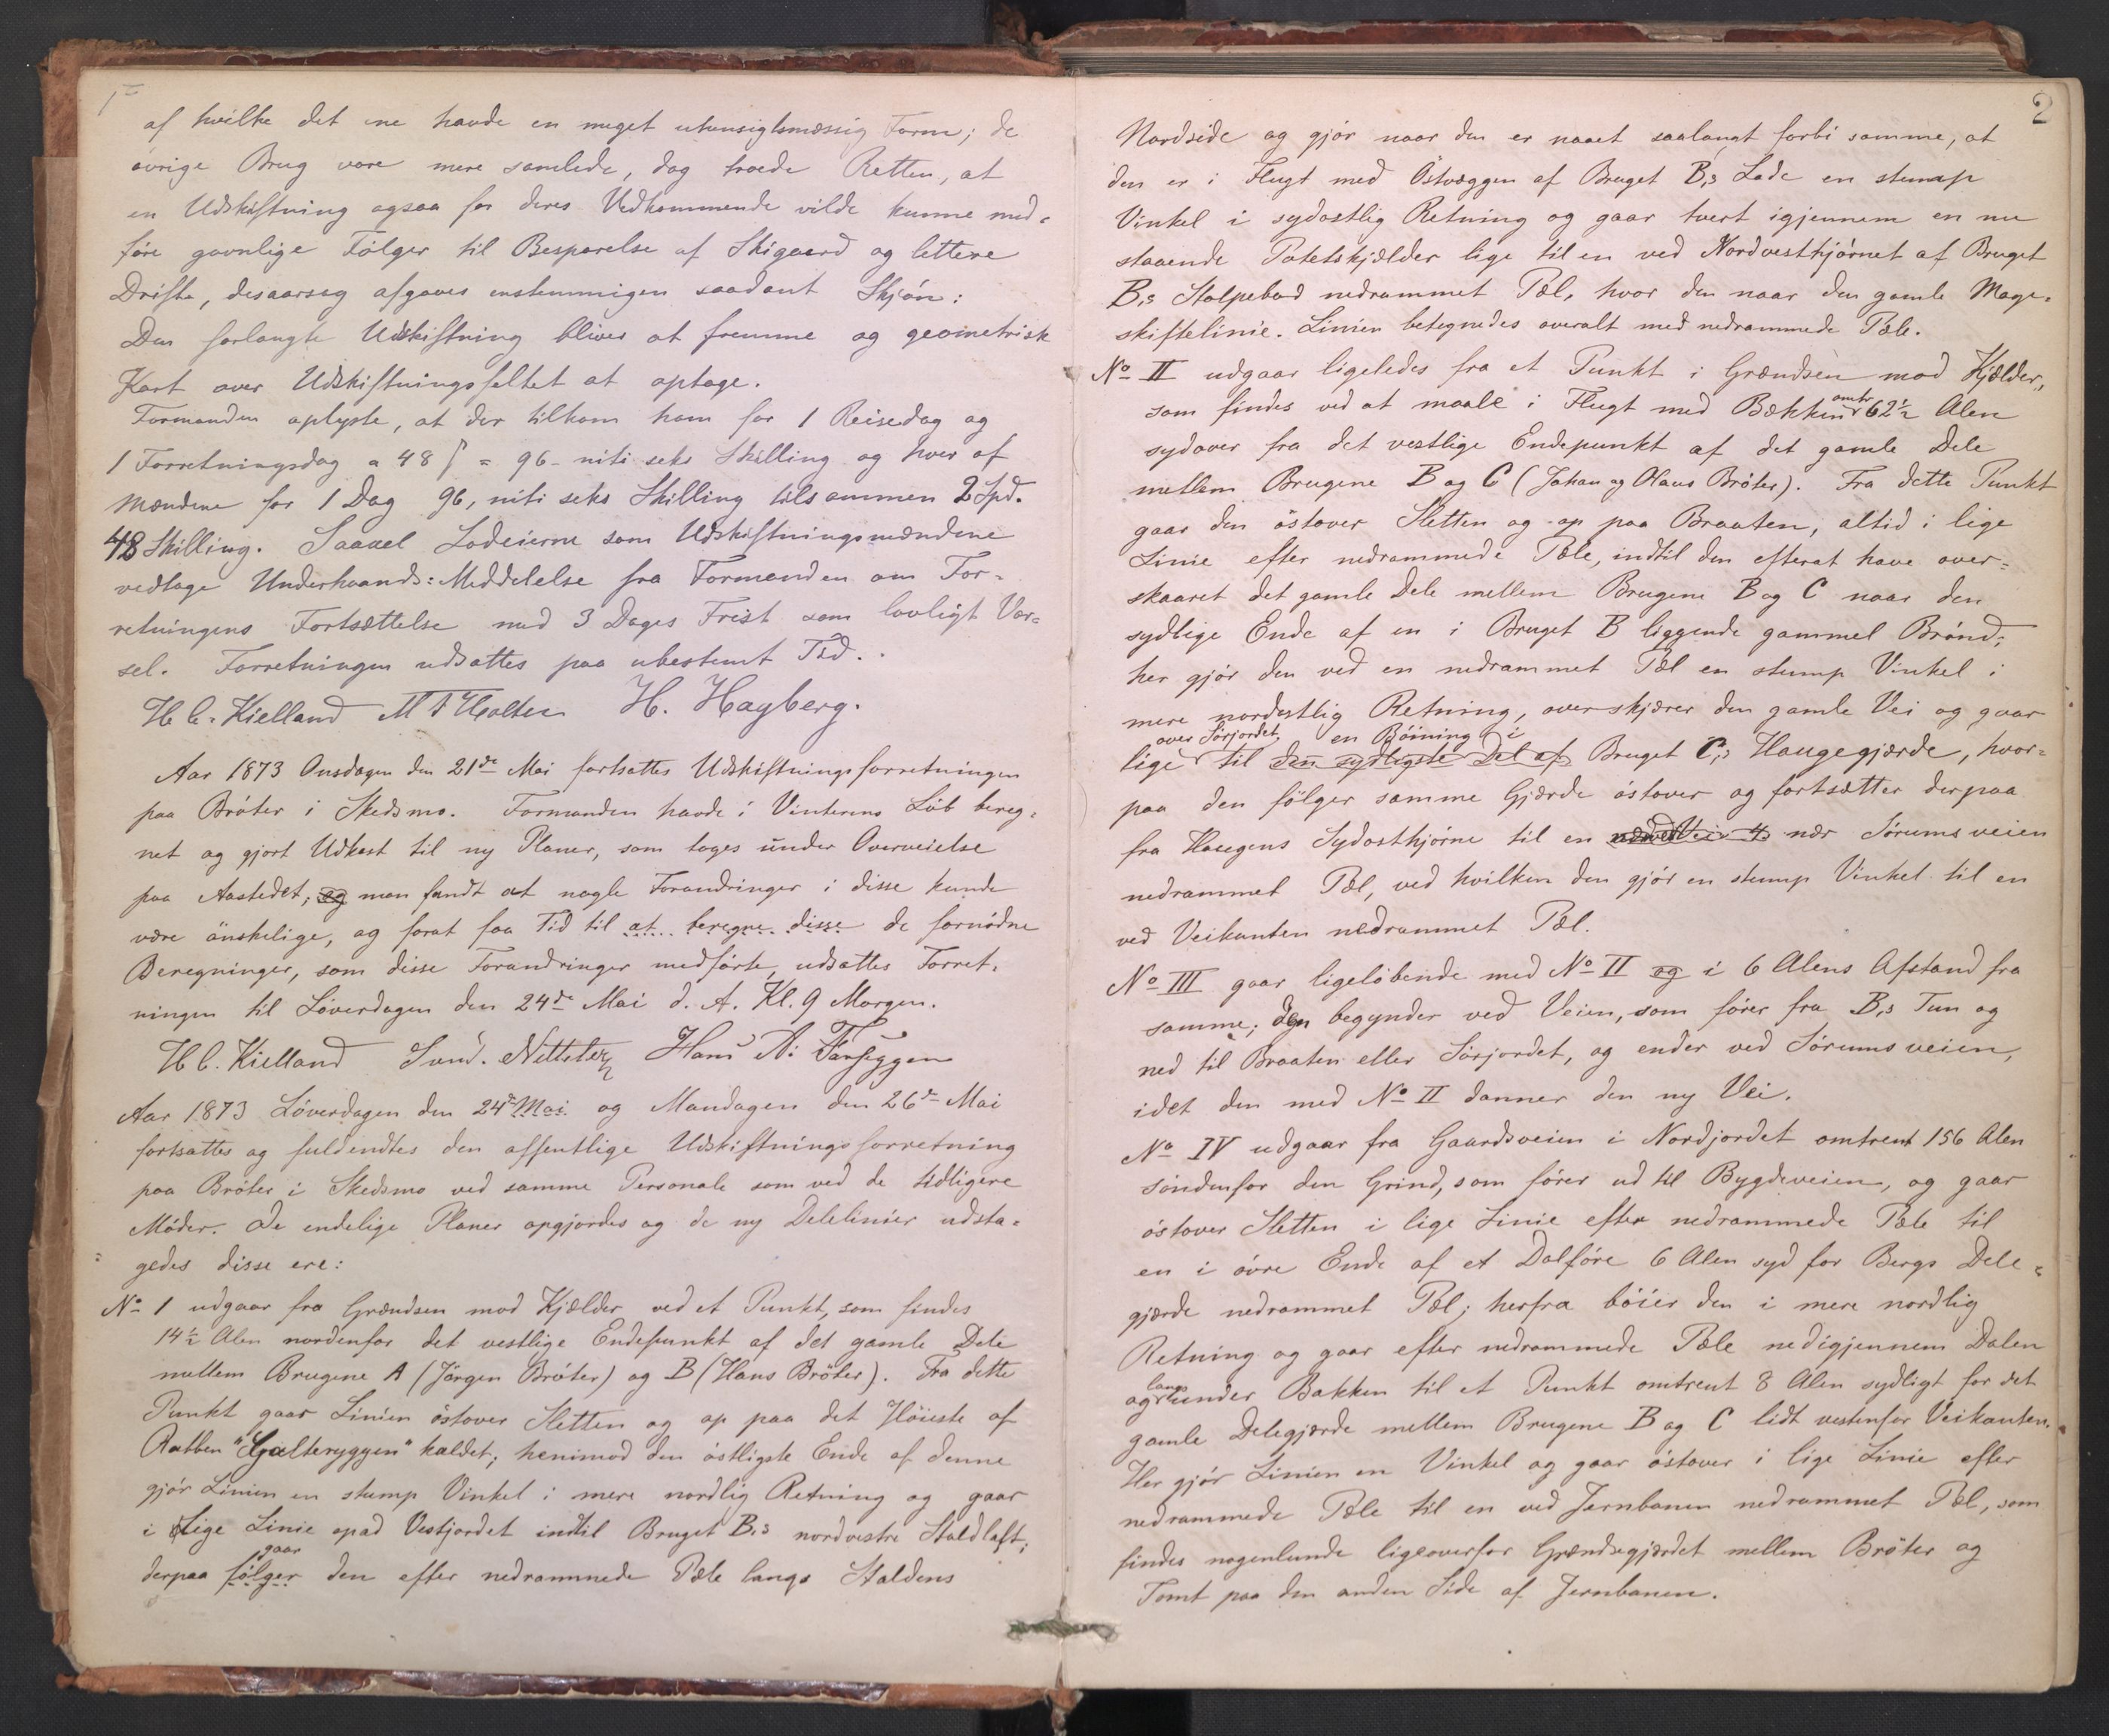 af hvilke det ene havde en meget uhensigtsmæssig Form; de
øvrige Brug vare mere samlede, dog troede Retten, at
en Udskiftning ogsaa for deres Vedkommende vilde kunne med=
føre gavnlige Følger til Besparelse af Skigaard og lettere
Drift, desaarsag afgaves enstemmigen saadant Skjøn:
Den forlangte Udskiftning bliver at fremme og geometrisk
Kart over Udskiftningsfeltet at optage.
Formanden oplyste, at der tilkom ham for 1 Reisedag og
1 Forretningsdag a 48 ſ = 96 - niti seks Skilling og hver af
Mændene for 1 Dag 96, niti seks Skilling tilsammen 2 Spd.
48 Skilling. Saavel Lodeierne som Udskiftningsmændene
vedtage Underhaands=Meddelelse fra Formanden om For=
retningens Fortsættelse med 3 Dages Frist som lovligt Var=
sel. Forretningen udsattes paa ubestemt Tid.
H C. Kielland M T Holter H. Hagberg.
Aar 1873 Onsdagen den 21de Mai fortsattes Udskiftningsforretningen
paa Brøter i Skedsmo. Formanden havde i Vinterens Løb bereg=
net og gjort Udkast til ny Planer, som toges under Overveielse
paa Aastedet; og man fandt at nogle Forandringer i disse kunde
være ønskelige, og forat faa Tid til at beregne disse de fornødne
Beregninger, som disse Forandringer medførte, udsattes Forret=
ningen til Løverdagen den 24de Mai d. A. Kl. 9 Morgen.
H C. Kielland Hans A:
Aar 1873 Løverdagen den 24de Mai og Mandagen den 26de Mai
fortsattes og fuldendtes den offentlige Udskiftningsforretning
paa Brøter i Skedsmo ved samme Personale som ved de tidligere
Møder. De endelige Planer opgjordes og de ny Delelinier udsta=
gedes disse ere:
No 1 udgaar fra Grændsen mod Kjælder ved et Punkt, som findes
14½ Alen nordenfor det vestlige Endepunkt af det gamle Dele
mellem Brugene A (Jørgen Brøter) og B (Hans Brøter). Fra dette
Punkt gaar Linien østover Sletten og op paa det Høieste af
"Galteryggen" kaldet; henimod den østligste Ende af denne
gjør Linien en stump Vinkel i mere nordlig Retning og gaar
i lige Linie opad Vestjordet indtil Bruget B,s nordvestre Staldlaft;
gaar
derpaa følger den efter nedrammede Pæle langs Staldens
2
Nordside og gjør naar den er naaet saalangt forbi samme, at
den er i Flugt med Østvæggen af Bruget B,s Lade en stump
Vinkel i sydostlig Retning og gaar tvert igjennem en nu
staaende Potetskjælder lige til en ved Nordvesthjørnet af Bruget
B,s Stolpebod nedrammet Pæl, hvor den naar den gamle Mage=
skiftelinie. Linien betegnedes overalt med nedrammede Pæle.
No II udgaar ligeledes fra et Punkt i Grændsen mod Kjælder,
omtr
som findes ved at maale i Flugt med Bækken 62½ Alen
sydover fra det vestlige Endepunkt af det gamle Dele
mellem Brugene B og C (Johan og Olaus Brøter). Fra dette Punkt
gaar den østover Sletten og op paa Braaten, altid i lige
Linie efter nedrammede Pæle, indtil den efterat have over=
skaaret det gamle Dele mellem Brugene B og C naar den
sydlige Ende af en i Bruget B liggende gammel Brønd;
her gjør den ved en nedrammet Pæl en stump Vinkel i
mere nordostlig Retning, overskjærer den gamle Vei og gaar
over Sørjordet, en Bøining i
lige til den sydligste Del af Bruget C,s Haugegjærde, hvor=
paa den følger samme Gjærde østover og fortsætter derpaa
fra Haugens Sydosthjørne til en nær Sørumsveien
nedrammet Pæl, ved hvilken den gjør en stump Vinkel til en
ved Veikanten nedrammet Pæl.
No III gaar ligeløbende med No II og i 6 Alens Afstand fra
samme; den begynder ved Veien, som fører fra B,s Tun og
ned til Braaten eller Sørjordet, og ender ved Sørumsveien,
idet den med No II danner den ny Vei.
No IV udgaar fra Gaardsveien i Nordjordet omtrent 156 Alen
søndenfor den Grind, som fører ud til Bygdeveien, og gaar
østover Sletten i lige Linie efter nedrammede Pæle til
en i øvre Ende af et Dalføre 6 Alen syd for Bergs Dele=
gjærde nedrammet Pæl; herfra bøier den i mere nordlig
Retning og gaar efter nedrammede Pæle nedigjennem Dalen
langs
og under Bakken til et Punkt omtrent 8 Alen sydligt for det
gamle Delegjærde mellem Brugene B og C lidt vestenfor Veikanten.
Her gjør Linien en Vinkel og gaar østover i lige Linie efter
nedrammede Pæle til en ved Jernbanen nedrammet Pæl, som
findes nogenlunde ligeoverfor Grændsegjærdet mellem Brøter og
Tomt paa den anden Side af Jernbanen.